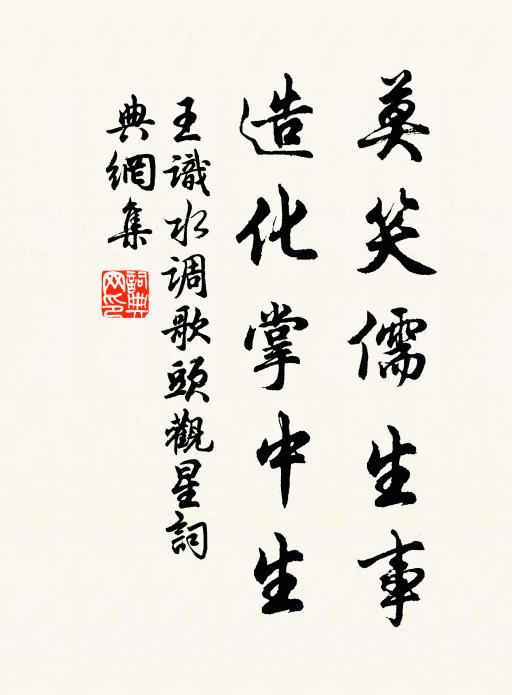 莫笑儒生事
造化掌中生
王識水调歌頭觀星詞
典網集
詞典網印